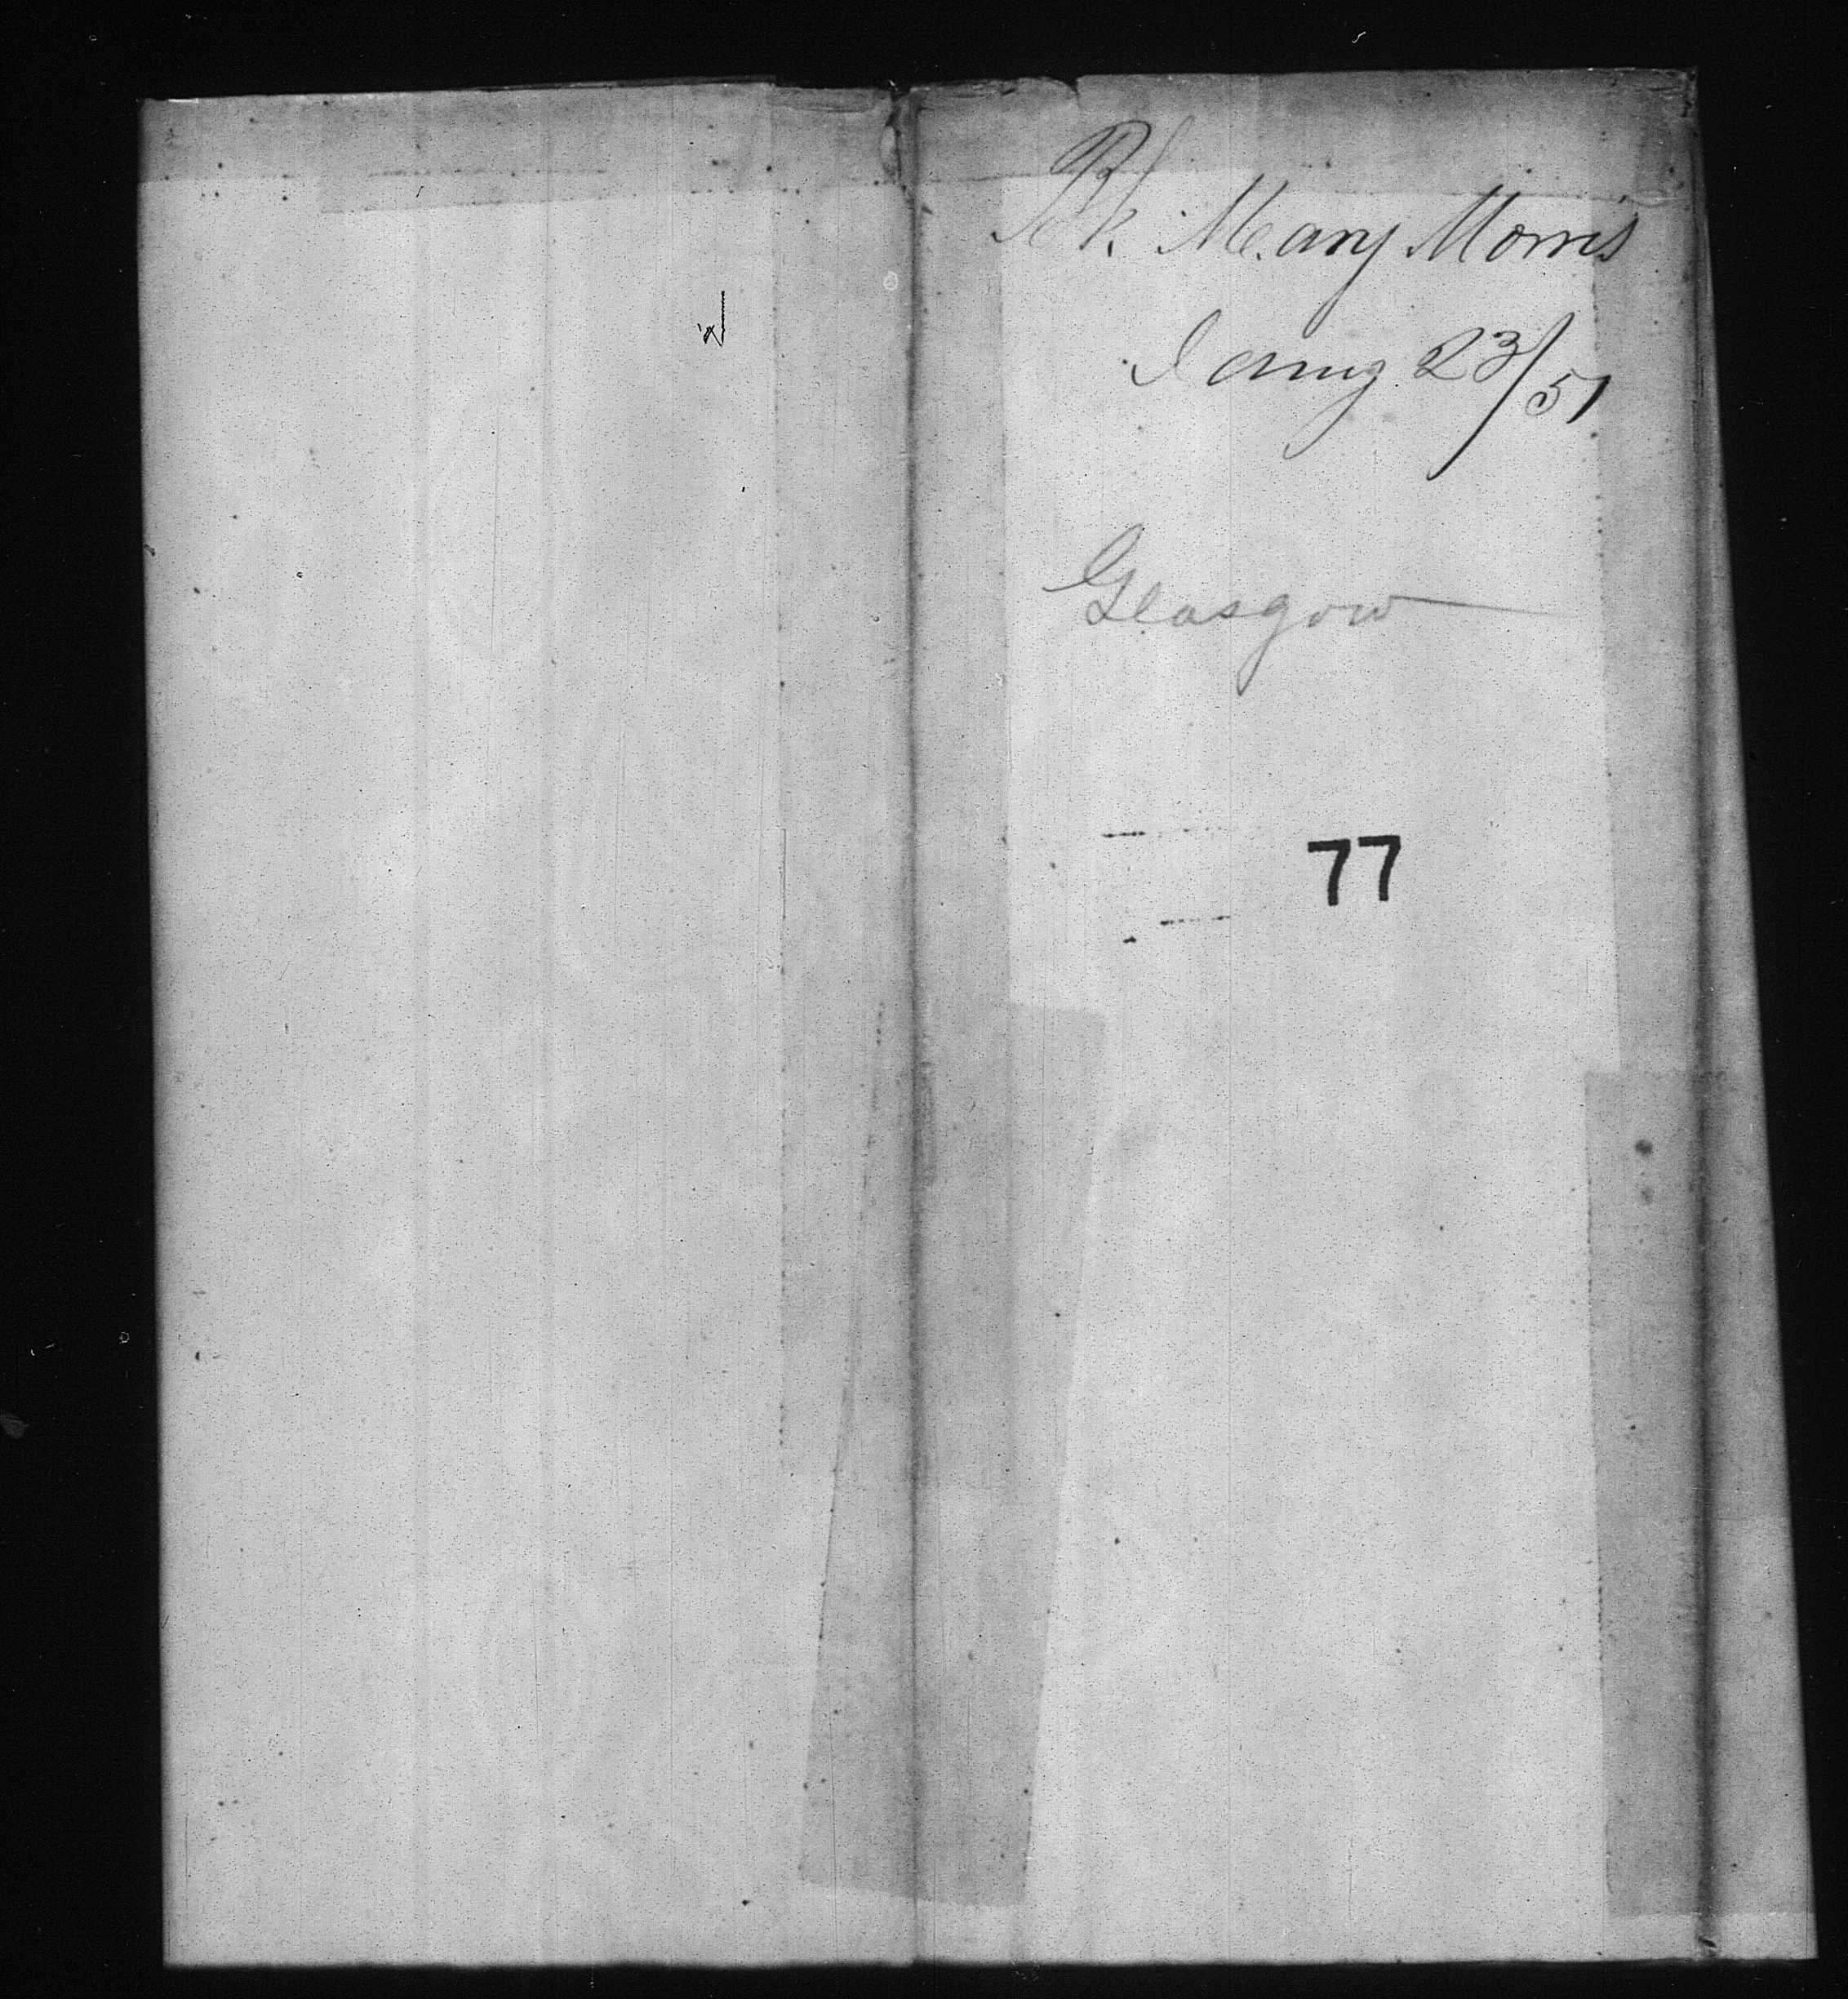 Bk Mary Morris
Jany 23/51
Glasgow
77